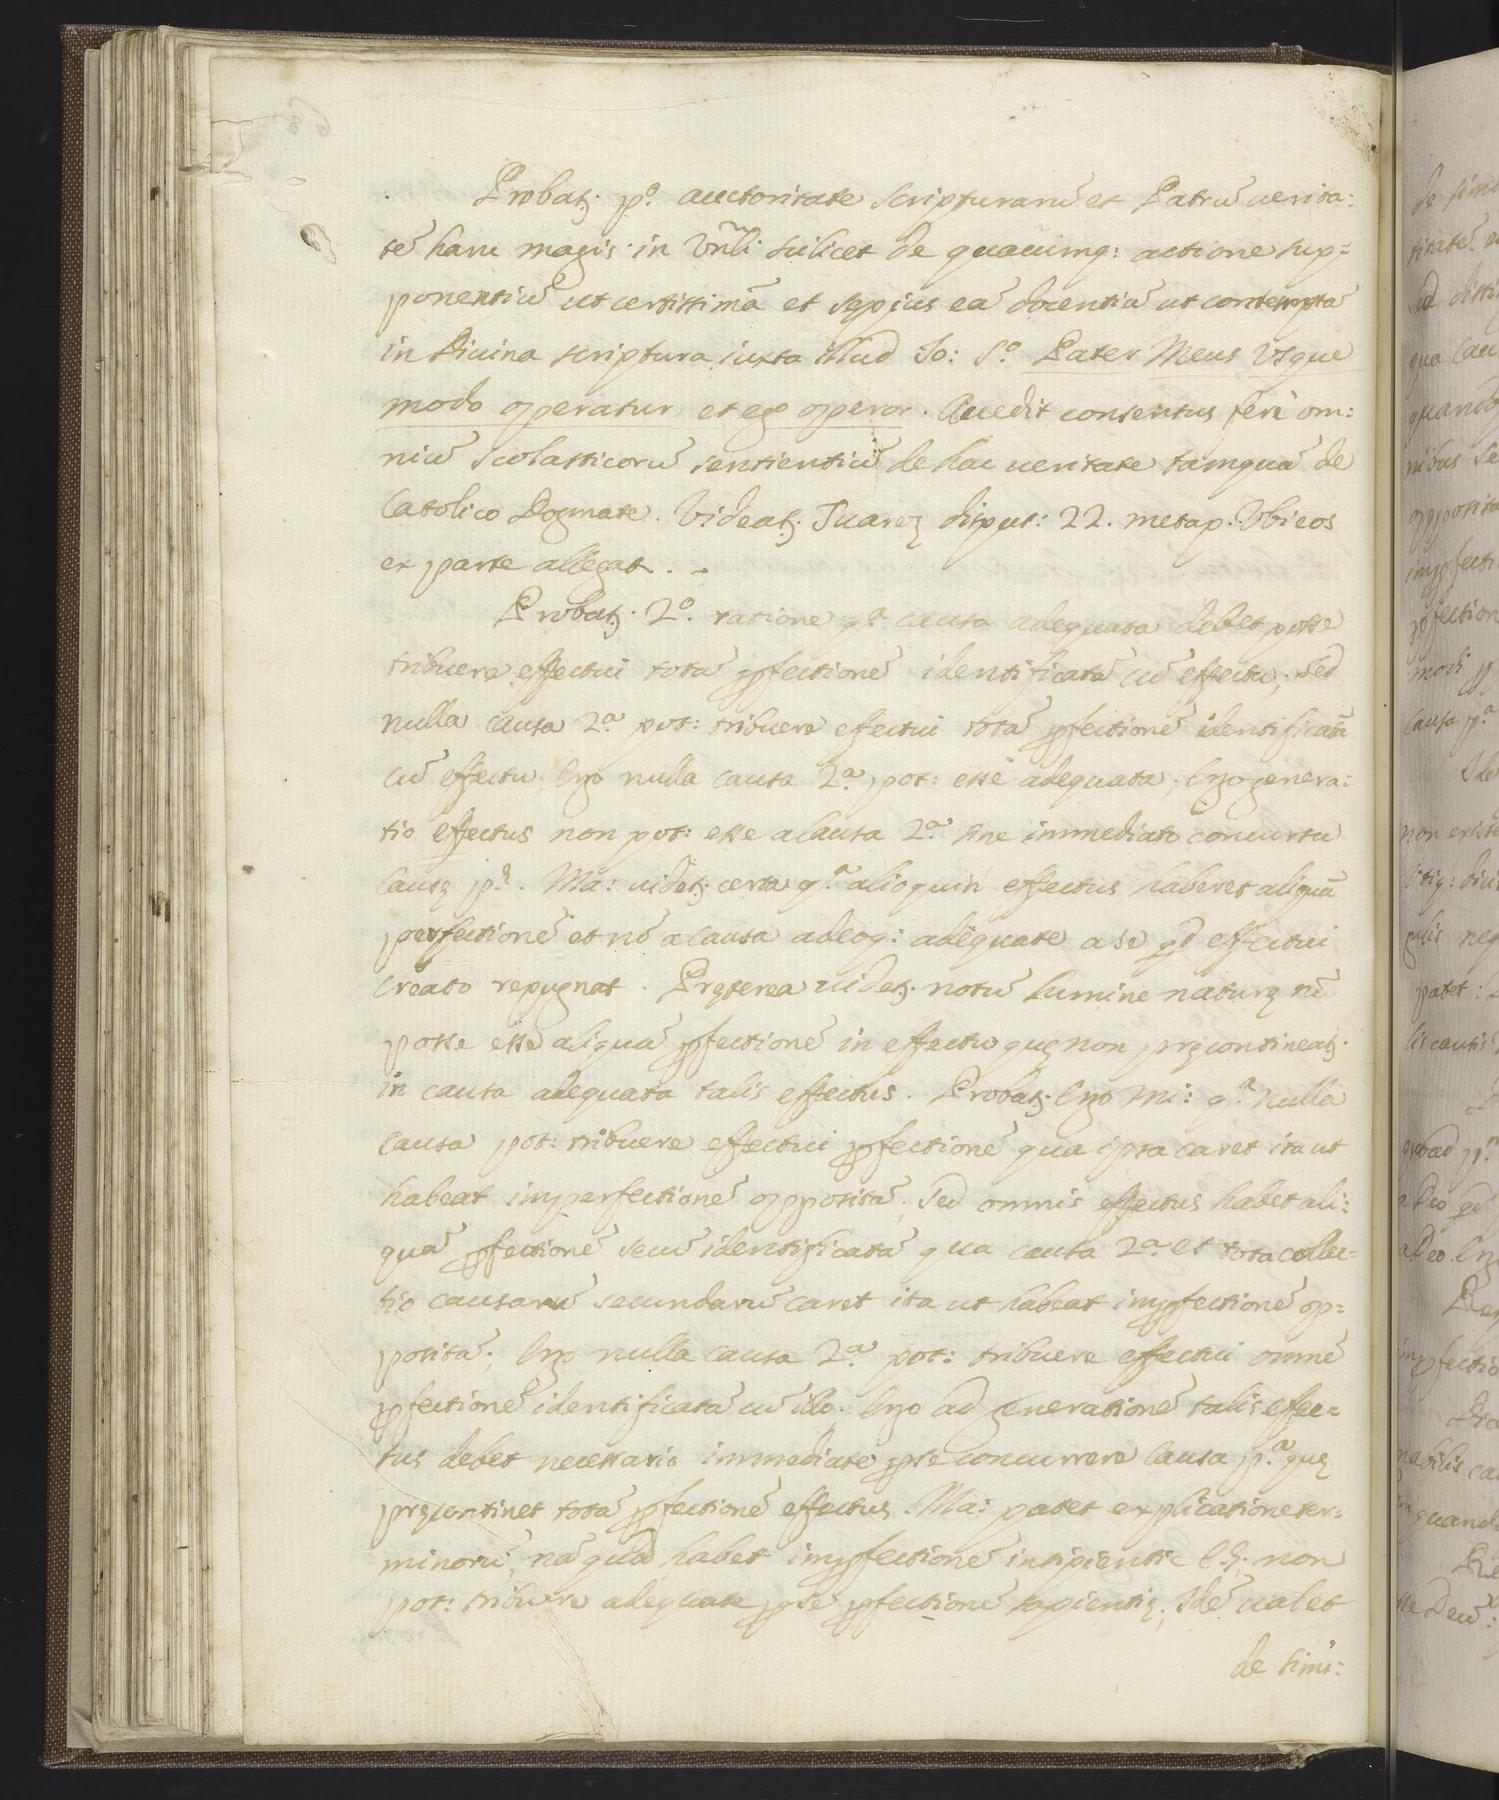 Probatʒ. pº. auctoritate scripturarũ et Patrũ uerita:
tẽ hanc magis in Vñli: scilicet de quacunq: actione sup=
ponentiũ ut certissimã et sepius eã docentiũ ut contentã
in Diuina scriptura, iuxta illud Io: 5º. Pater Meus Vsque
modo operatur et ego operor. Accedit consensus ferè om:
niũ Scolasticorũ sentientiũ de hac ueritate tamquã de
Catolico Dogmate. Videatʒ. Suarez disput: 22. metap. Vbi eos
ex parte allegat. -
Probatʒ. 2º. ratione qª. causa adequata debet posse
tribuere effectui totã ꝑfectionẽ identificatã cũ effectu; sed
nulla causa 2ª. pot: tribuere effectui totã ꝑfectionẽ identificatã
cũ effectu. Ergo nulla causa 2ª. pot: esse adequata; Ergo genera:
tio effectus non pot: esse a causa 2ª. sine immediato concursu
causę pę. Ma: uidetʒ. certa qª. alioquin effectus haberet aliquã
perfectionẽ et nõ a causa adeoq: adequate a se qđ effectui
creato repugnat. Pręterea uidetʒ. notũ lumine naturę nõ
posse esse aliquã ꝑfectionẽ in effectu quę non pręcontineatʒ.
in causa adequata talis effectus. Probatʒ. Ergo Mi: qª. nulla
causa pot: tribuere effectui ꝑfectionẽ qua ipsa caret ita ut
habeat imperfectionẽ oppositã; Sed omnis effectus habet ali:
quã ꝑfectionẽ secũ identificatã qua causa 2ª. et tota collec=
tio causarũ secundarũ caret ita ut habeat imꝑfectionẽ op=
positã; Ergo nulla causa 2ª. pot: tribuere effectui omnẽ
ꝑfectionẽ identificatã cũ illo. Ergo ad generationẽ talis effec=
tus debet necessario immediate ꝑ se concurrere Causa pª. quę
pręcontinet totã ꝑfectionẽ effectus. Ma: patet explicatione ter=
minorũ, nã quod habet imꝑfectionẽ insipientię non
pot: tribuere adequate ꝑ se ꝑfectionẽ sapientię; Idẽ ualet
de simi: